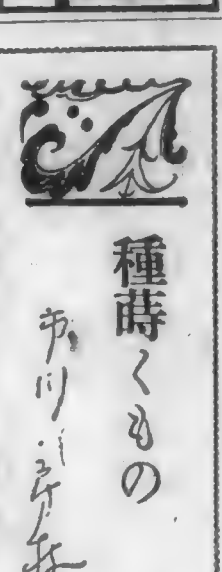 種蒔くもの
市川